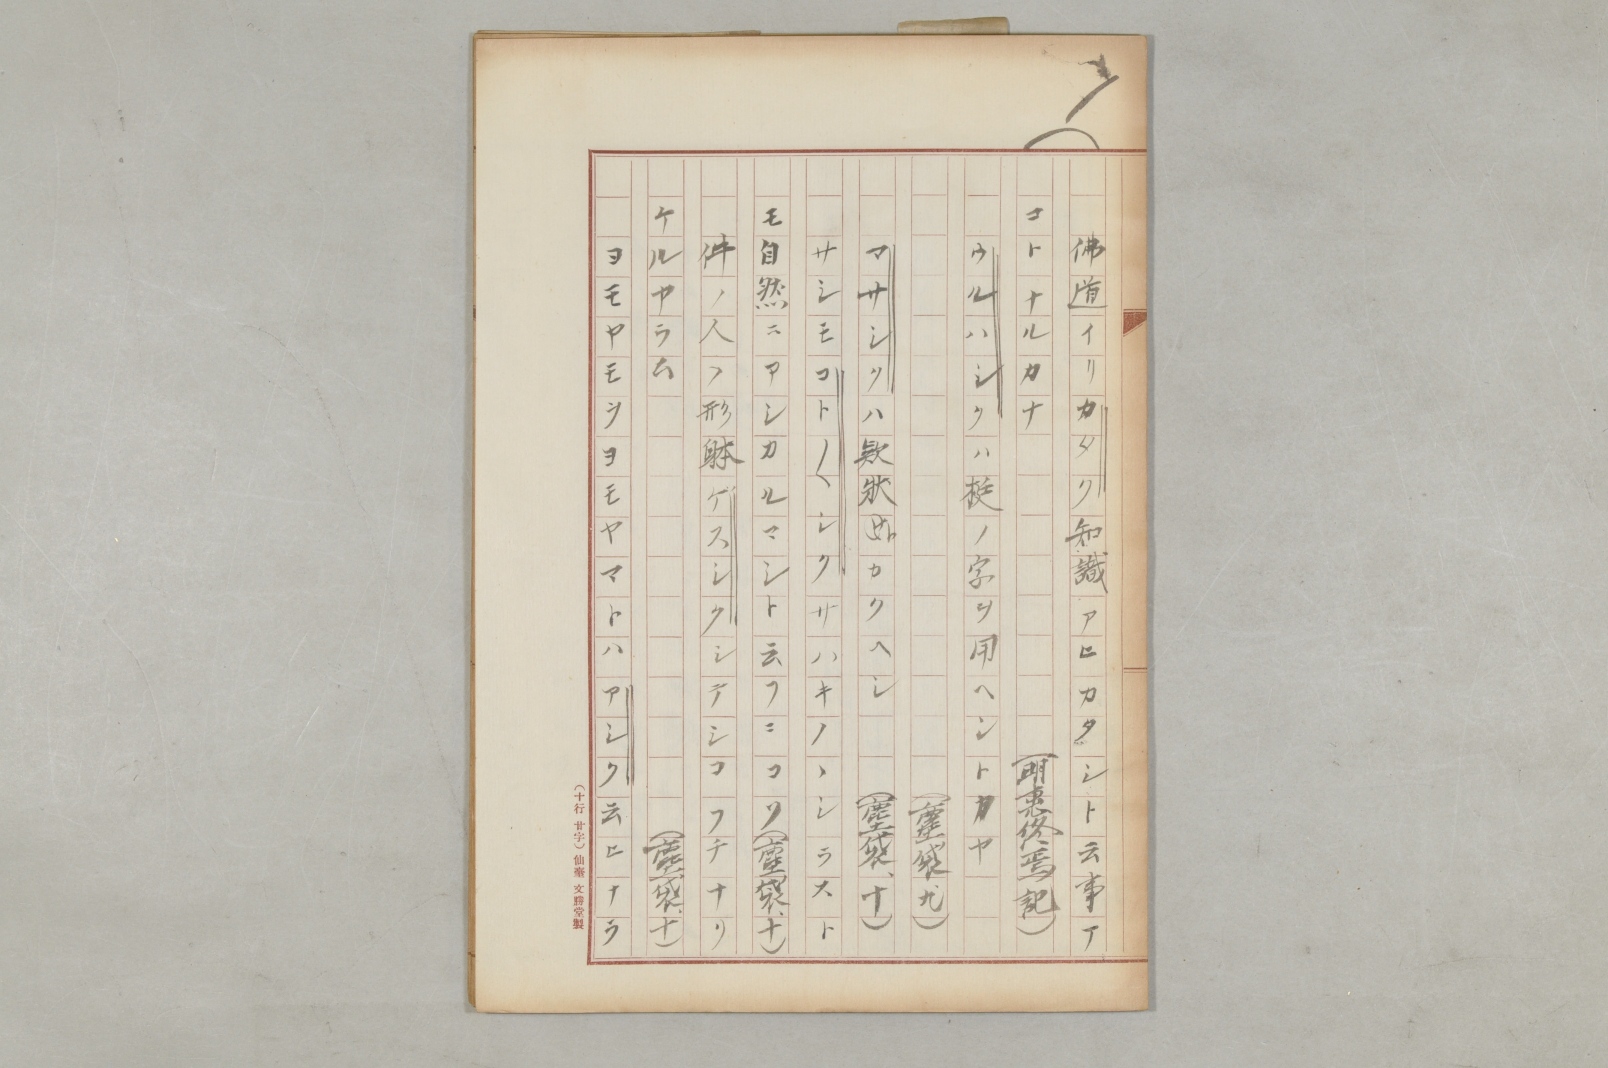 佛道イリカタク知識アヒカタシト云事ア
コトナルカナ（明恵終焉記）
ウルハシクハ挺ノ字ヲ用ヘシトカヤ
（塵袋九）
マサシクハ欵状如カクヘシ（塵袋、十）
サシモコト〳〵シクサハキノヽシラスト
モ自然ニアシカルマシト云フニコソ（塵袋、十）
件ノ人フ形躰ゲスシクシテシコフチナリ
ケルヤラム（塵袋、十）
ヨモヤモヲヨモヤマトハアシク云ヒナラ
（十行 廿字）仙臺 文勝堂製